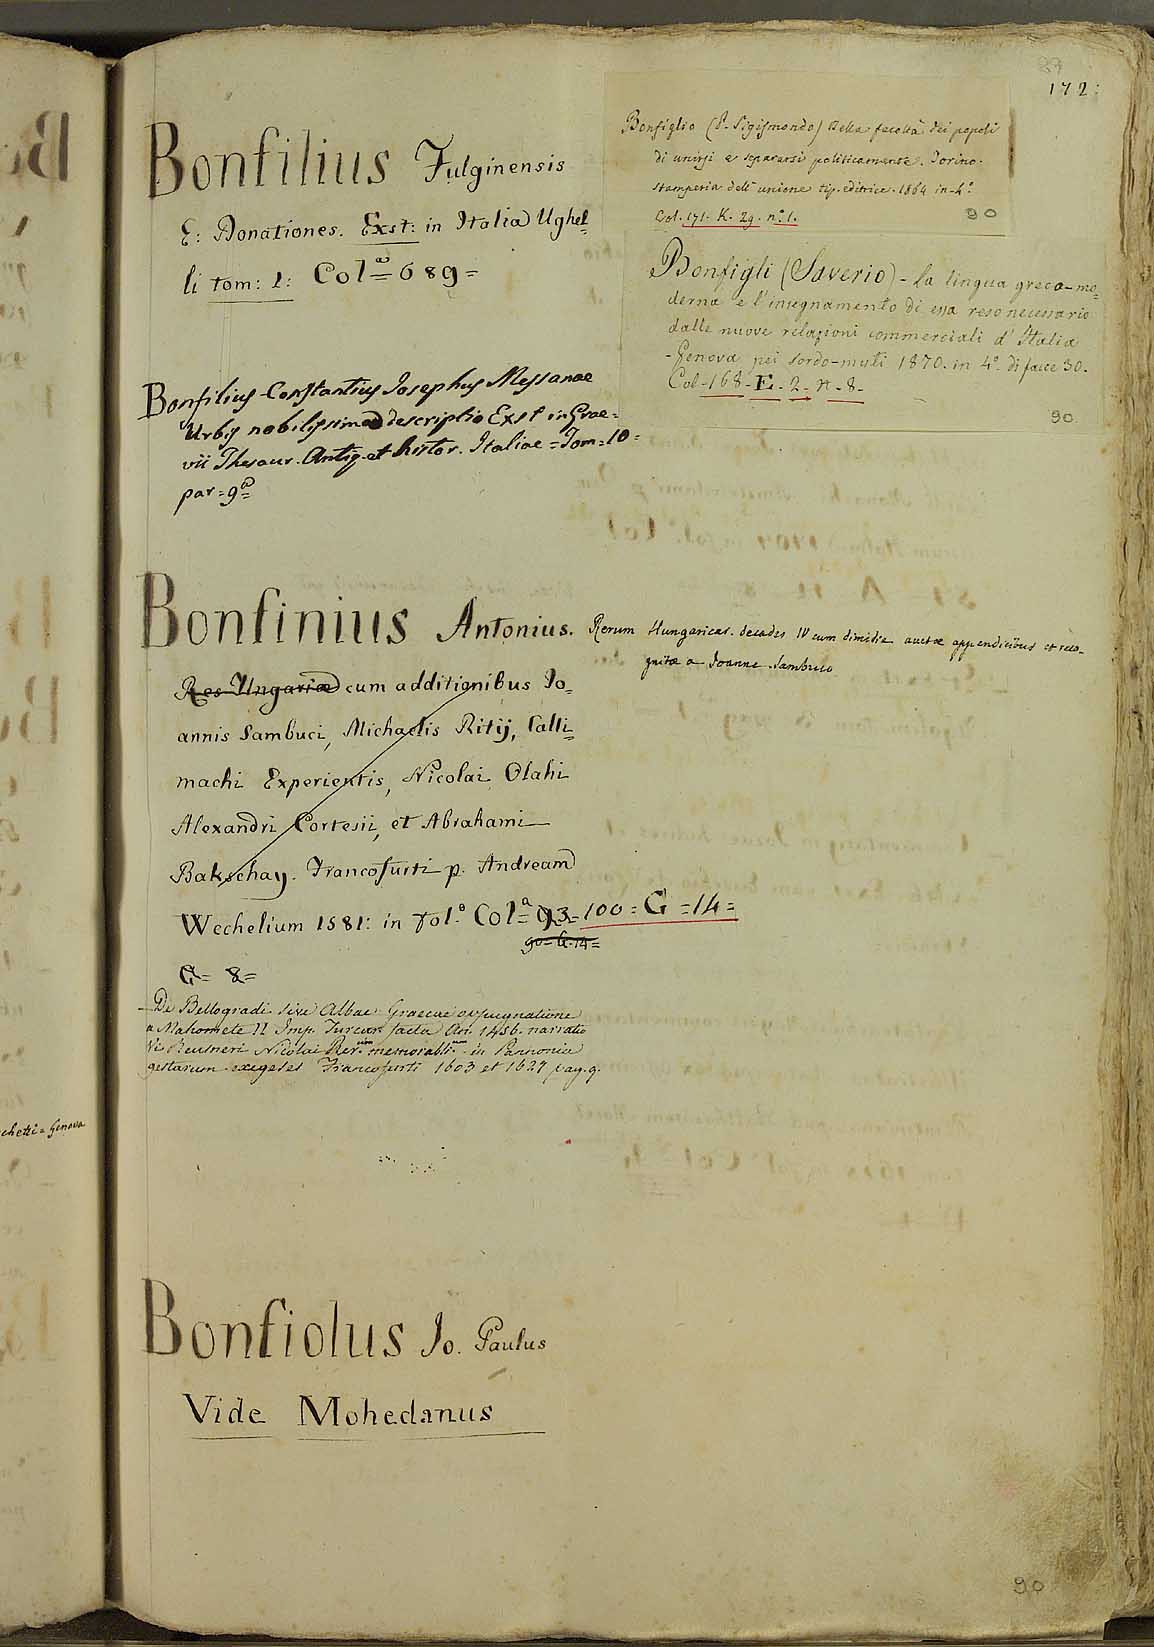 172:
Bonfilius Fulginensis
E: Donationes. Exst: in Italia Ughel=
li tom: 1: Colª= 689=
Bonfiglio (P. Sigismondo) Della facoltà dei popoli
di unirsi e separarsi politicamente. Torino.
stamperia dell'unione tip. editrice. 1864 in-4º
Col. 171. K. 29. nº 1.
90
Bonfigli (Saverio) - La lingua greca-mo=
derna e l'insegnamento di essa reso necessario
dalle nuove relazioni commerciali d'Italia
-Genova pei sordo-muti 1870. in 4º di facce 30.
Col-168-E-2-n-8-
90
Bonfilius Constantius Josephus Messanae
Urbis nobilissimae descriptio Exst in Grae=
vii Thesaur. Antiq. et histor. Italiae = Tom=10=
par=9ª
Bonfinius Antonius. Rerum Hungaricar. decades IV cum dimidia auctae appendicibus et reco-
gnitae a Joanne Sambuco
Res Ungariae cum additionibus Jo=
annis Sambuci, Michaelis Ritij, Calli=
machi Experientis, Nicolai Olahi
Alexandri Cortesii, et Abrahami
Bakschay. Francofurti p. Andream
Wechelium 1581: in folº Colª= 93= 100= G =14=
90= G. 14=
G= 8=
- De Bellogradi sive Albae Graecae oppugnatione
a Mahomete II Imp. Turcar. facta An. 1456. narratio
Reusneri Nicolai Rerum memorabilium in Pannonia
gestarum exegeses Francofurti 1603 et 1627 pag. 9.
chetti= Genova
Bonfiolus Jo. Paulus
Vide Mohedanus
90